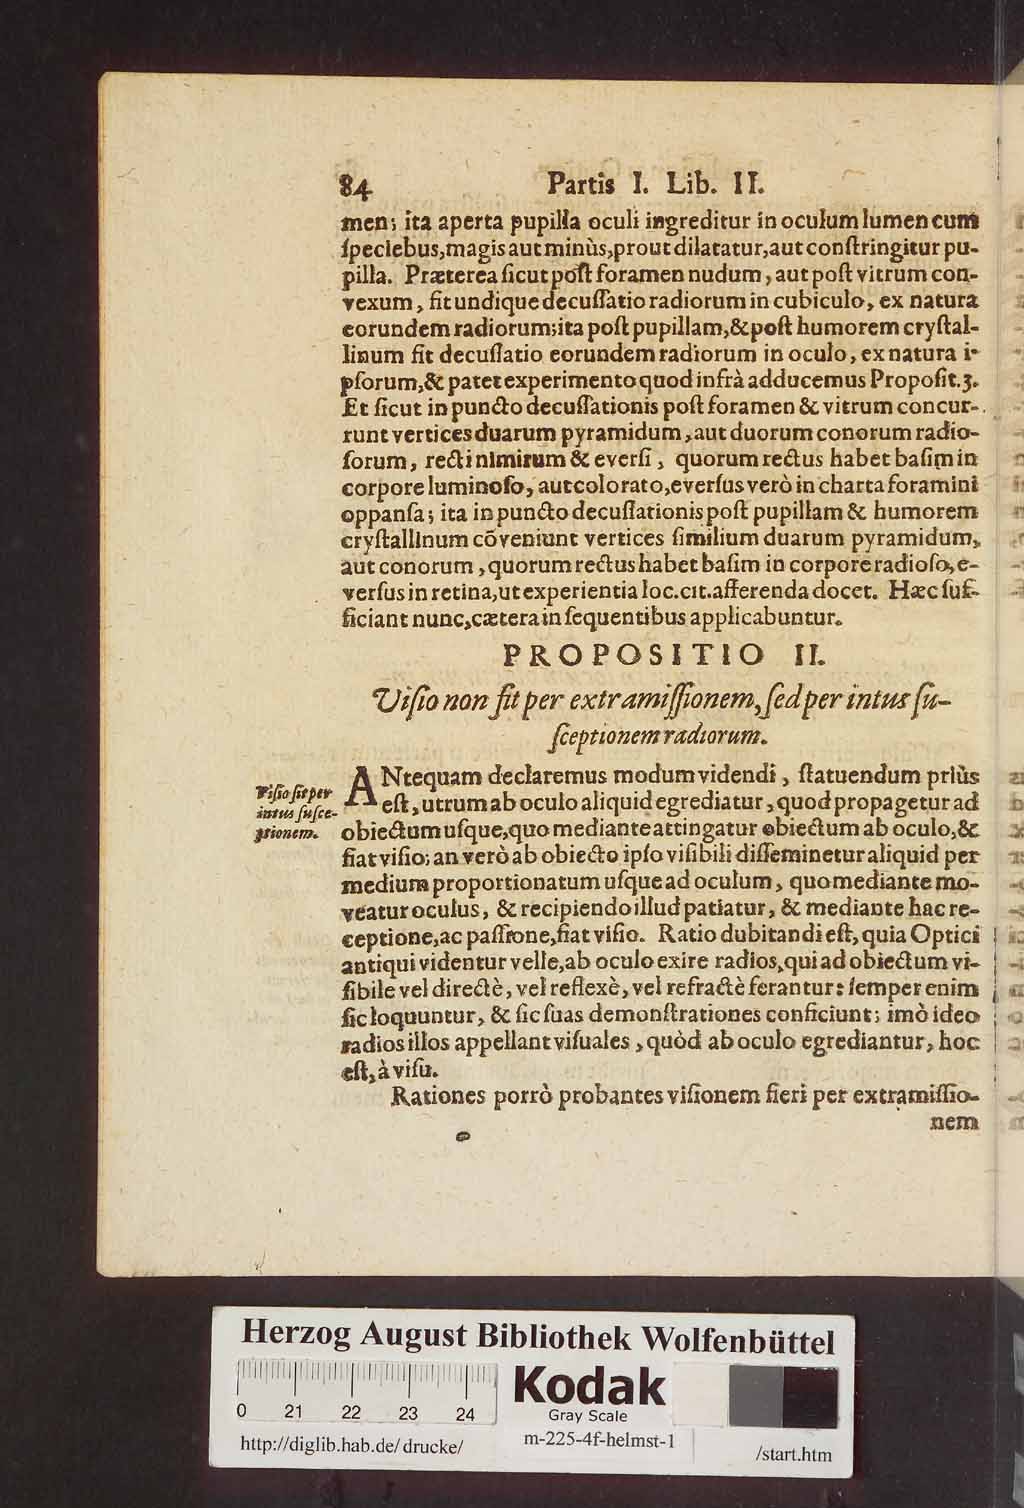 84 Partis I. Lib. II.
men; ita aperta pupilla oculi ingreditur in oculum lumen cum
ſpeciebus, magis aut minùs, prout dilatatur, aut conſtringitur pu-
pilla. Præterea ſicut poſt foramen nudum, aut poſt vitrum con-
vexum, fit undique decuſſatio radiorum in cubiculo, ex natura
eorundem radiorum; ita poſt pupillam, & poſt humorem cryſtal-
linum fit decuſſatio eorundem radiorum in oculo, ex natura i-
pſorum, & patet experimento quod infrà adducemus Propoſit. 3.
Et ſicut in puncto decuſſationis poſt foramen & vitrum concur-
runt vertices duarum pyramidum, aut duorum conorum radio-
ſorum, recti nimirum & everſi, quorum rectus habet baſim in
corpore luminoſo, aut colorato, everſus verò in charta foramini
oppanſa; ita in puncto decuſſationis poſt pupillam & humorem
cryſtallinum cõveniunt vertices ſimilium duarum pyramidum,
aut conorum, quorum rectus habet baſim in corpore radioſo, e-
verſus in retina, ut experientia loc. cit. afferenda docet. Hæc ſuf-
ficiant nunc, cætera in ſequentibus applicabuntur.
PROPOSITIO II.
Viſio non fit per extramiſſionem, ſed per intus ſu-
ſceptionem radiorum.
Viſio fit per
intus ſuſce-
ptionem.
ANtequam declaremus modum videndi, ſtatuendum priùs
eſt, utrum ab oculo aliquid egrediatur, quod propagetur ad
obiectum uſque, quo mediante attingatur obiectum ab oculo, &
fiat viſio; an verò ab obiecto ipſo viſibili diſſeminetur aliquid per
medium proportionatum uſque ad oculum, quo mediante mo-
veatur oculus, & recipiendo illud patiatur, & mediante hac re-
ceptione, ac paſſione, fiat viſio. Ratio dubitandi eſt, quia Optici
antiqui videntur velle, ab oculo exire radios, qui ad obiectum vi-
ſibile vel directè, vel reflexè, vel refractè ferantur: ſemper enim
ſic loquuntur, & ſic ſuas demonſtrationes conficiunt; imò ideo
radios illos appellant viſuales, quòd ab oculo egrediantur, hoc
eſt, à viſu.
Rationes porrò probantes viſionem fieri per extramiſſio-
nem
Herzog August Bibliothek Wolfenbüttel
0 21 22 23 24
Kodak
Gray Scale
http://diglib.hab.de/drucke/ m-225-4f-helmst-1 /start.htm